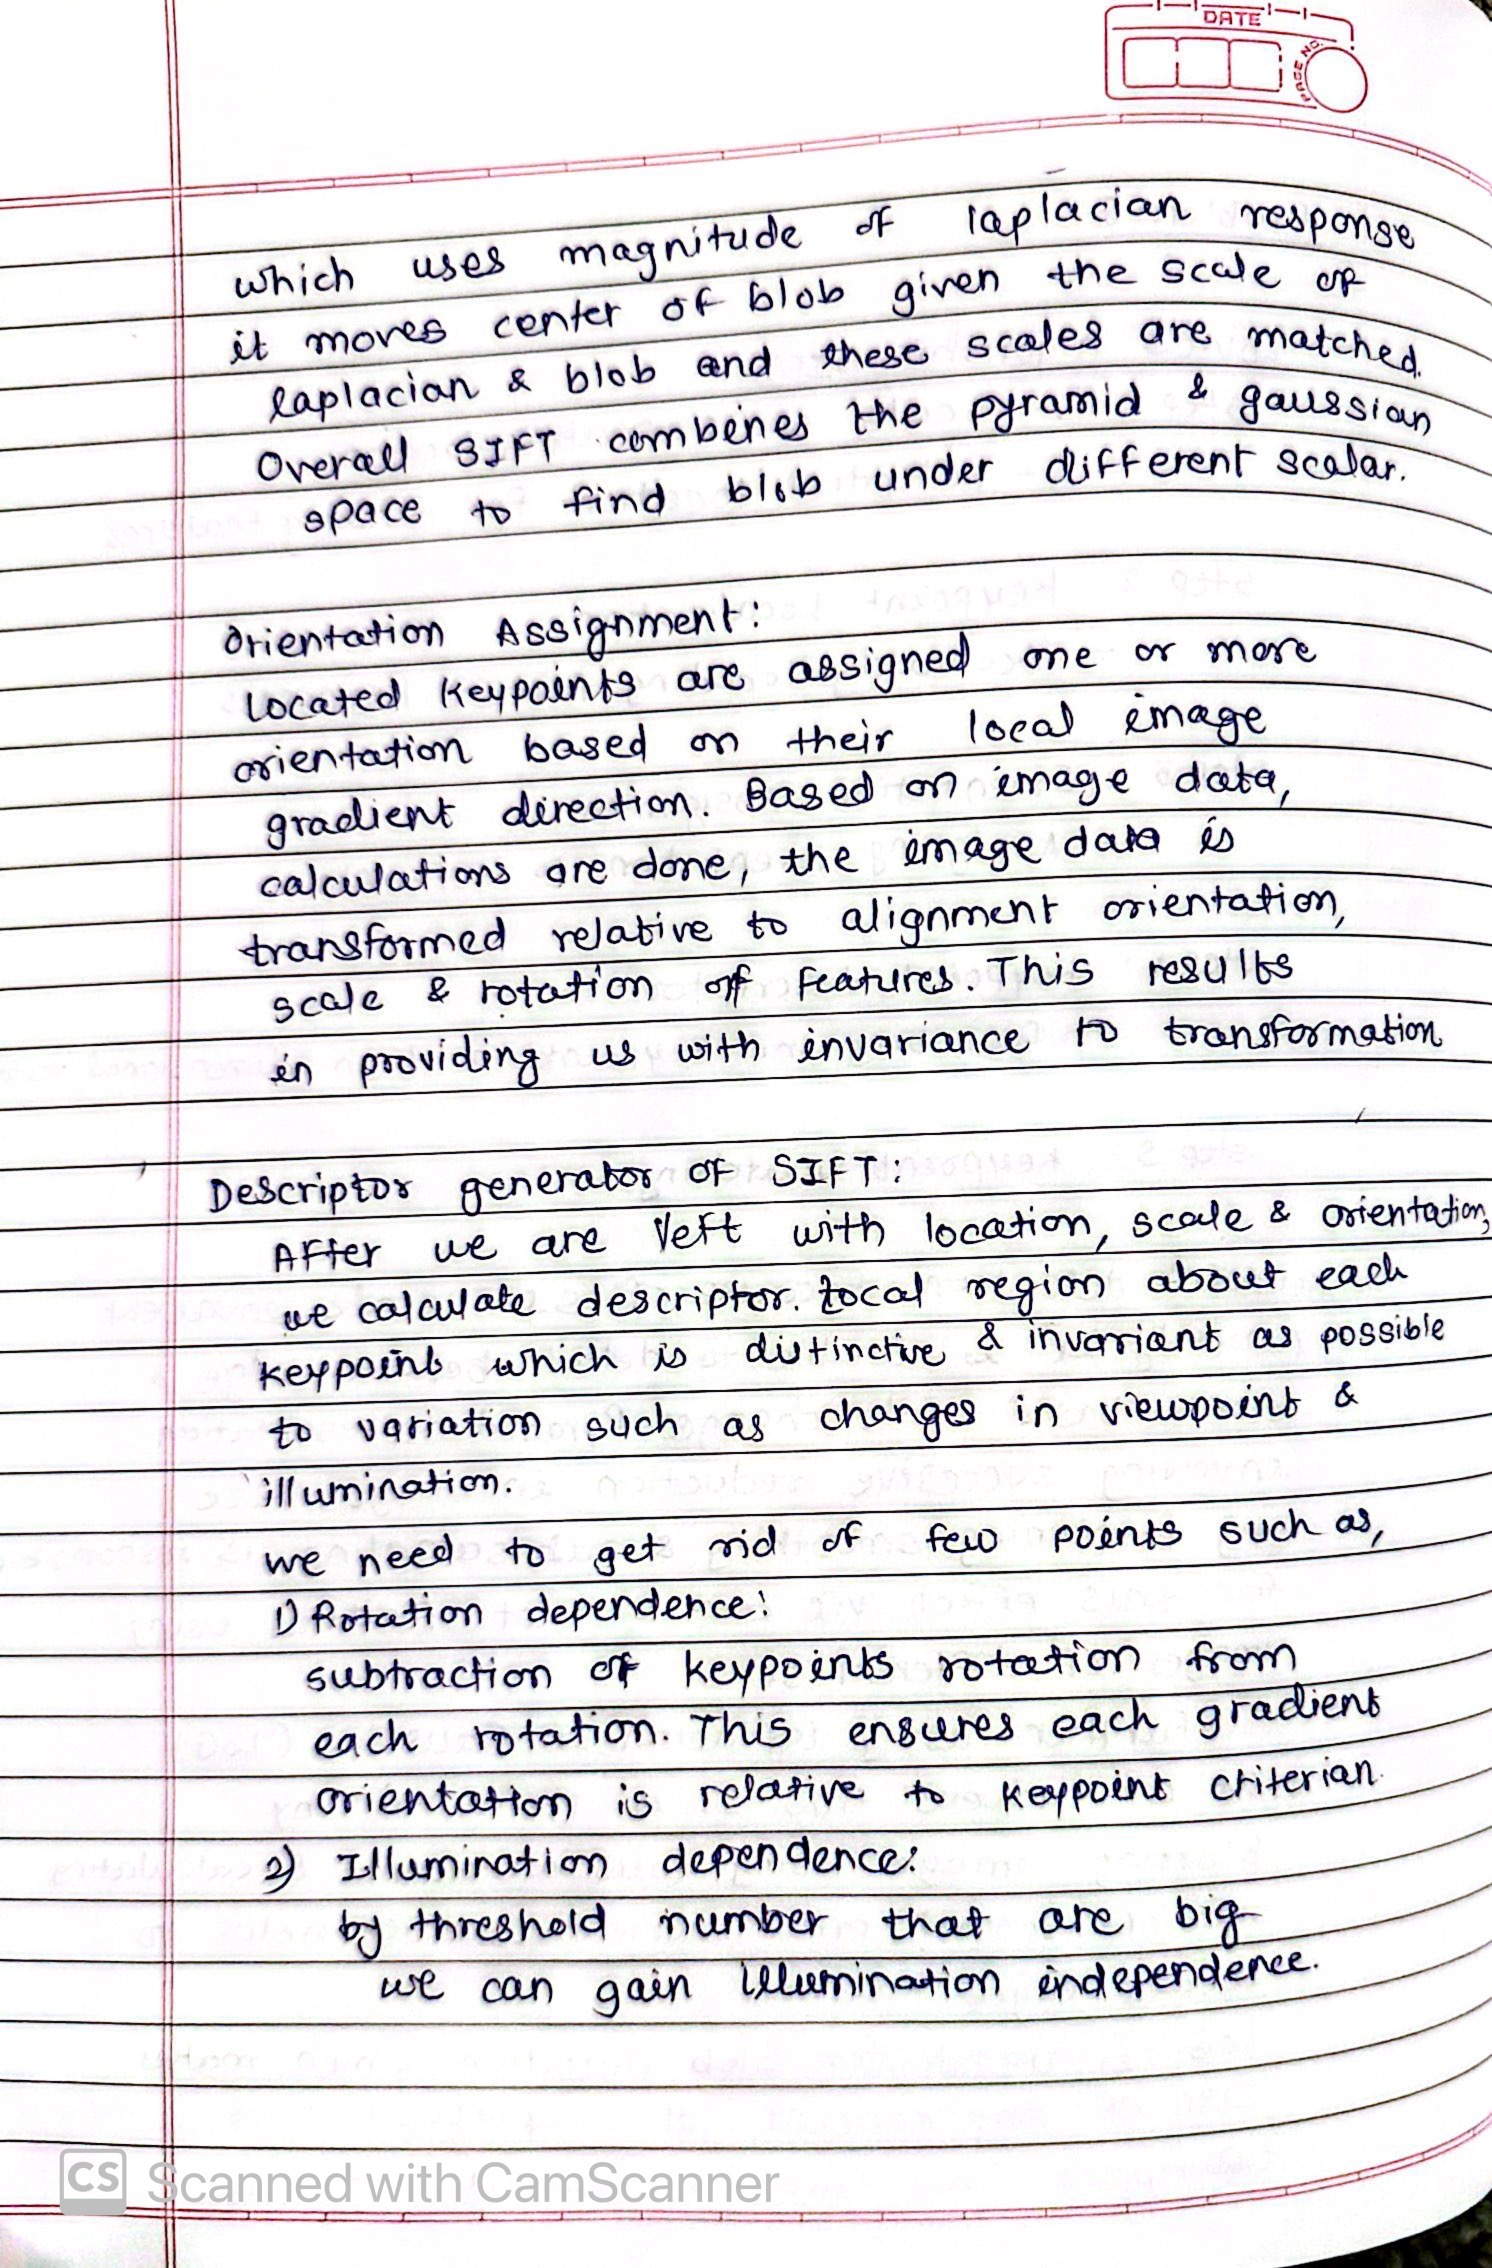 DATE
PAGE NO.
which uses magnitude of laplacian response
it moves center of blob given the scale of
laplacian & blob and these scales are matched.
Overall SIFT combines the pyramid & gaussian
space to find blob under different scalar.
Orientation Assignment:
Located keypoints are assigned one or more
orientation based on their local image
gradient direction. Based on image data,
calculations are done, the image data is
transformed relative to alignment orientation,
scale & rotation of features. This results
in providing us with invariance to transformation
Descriptor generator of SIFT:
After we are left with location, scale & orientation,
we calculate descriptor. Local region about each
keypoint which is distinctive & invariant as possible
to variation such as changes in viewpoint &
illumination.
we need to get rid of few points such as,
1) Rotation dependence:
subtraction of keypoints rotation from
each rotation. This ensures each gradient
orientation is relative to keypoint criterian.
2) Illumination dependence:
by threshold number that are big
we can gain illumination independence.
CS Scanned with CamScanner